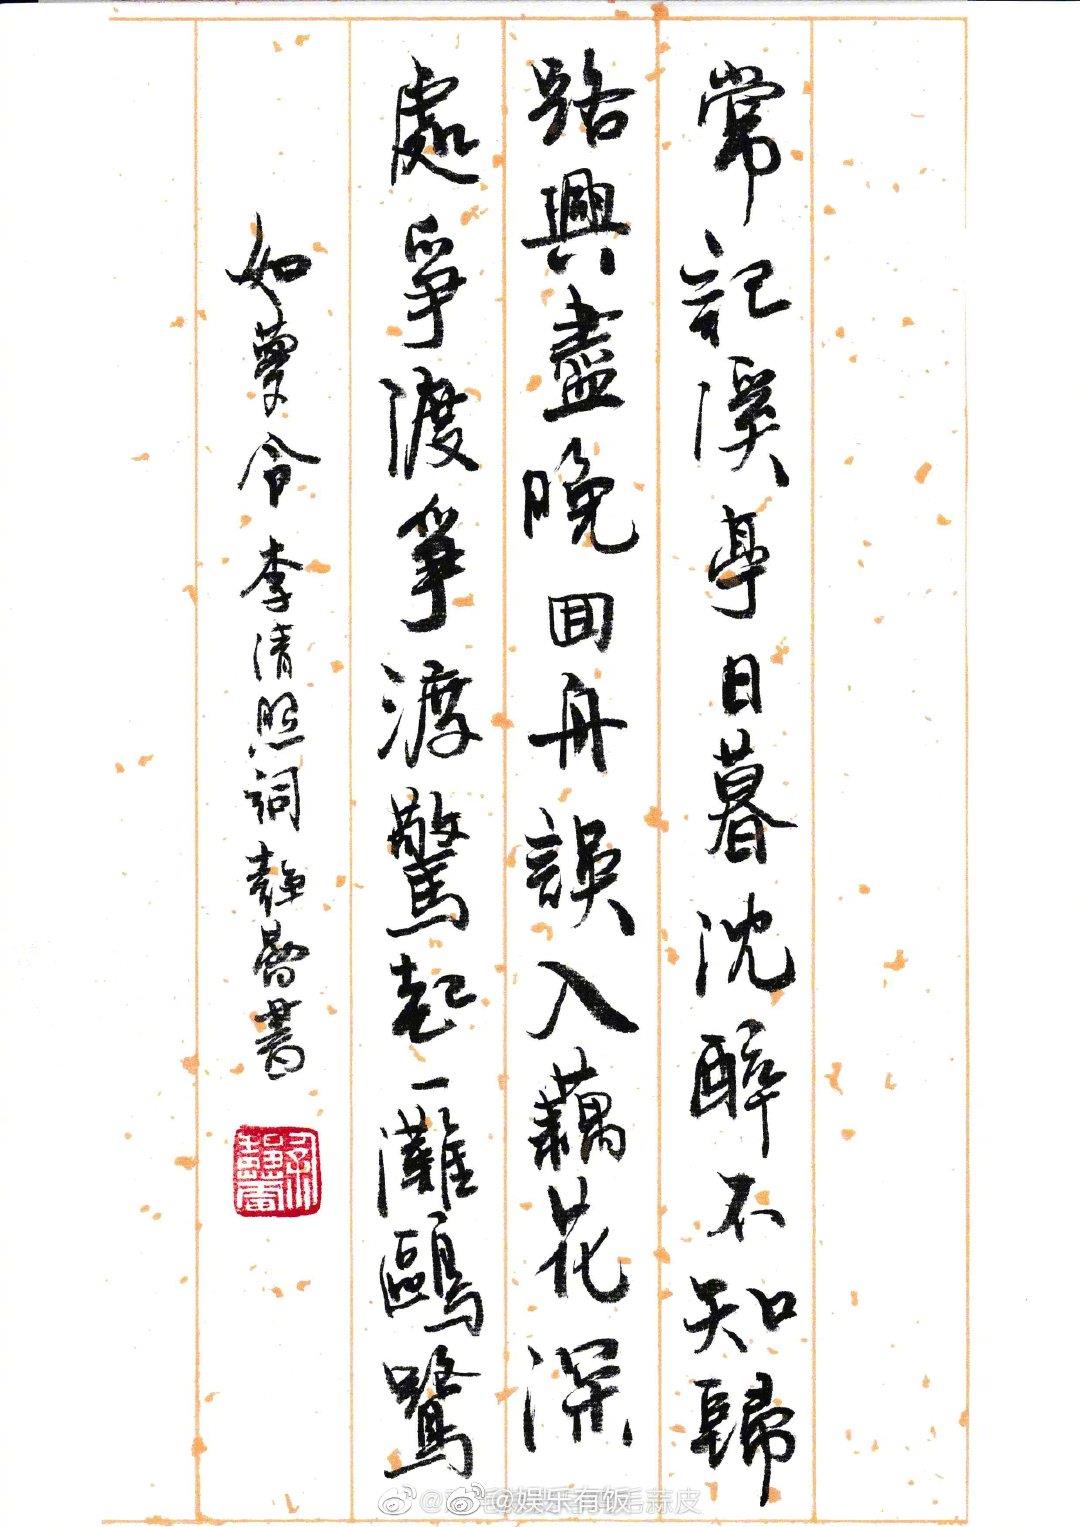 常記溪亭日暮沈醉不知歸
路興盡晚回舟誤入藕花深
處爭渡爭渡驚起一灘鷗鷺
如夢令李清照詞靜書
@娱乐有饭
毛蒜皮